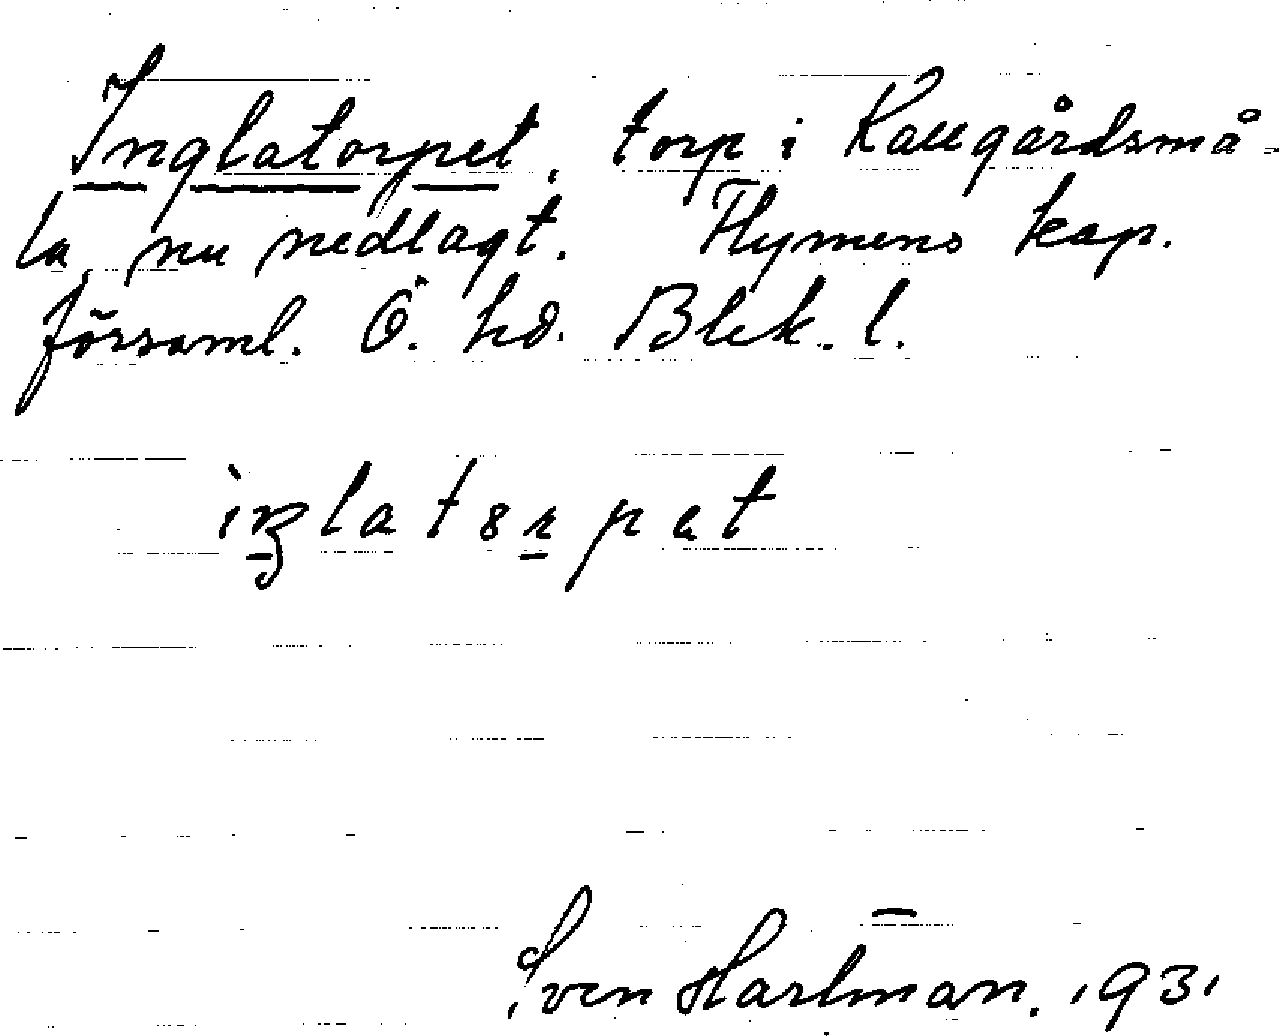 Inglatorpet, torp i Kallgårdsmå-
la, nu nedlagt. Flymens kap.
församl. Ö. hd. Blek. l.
Sven Hartman. 1931